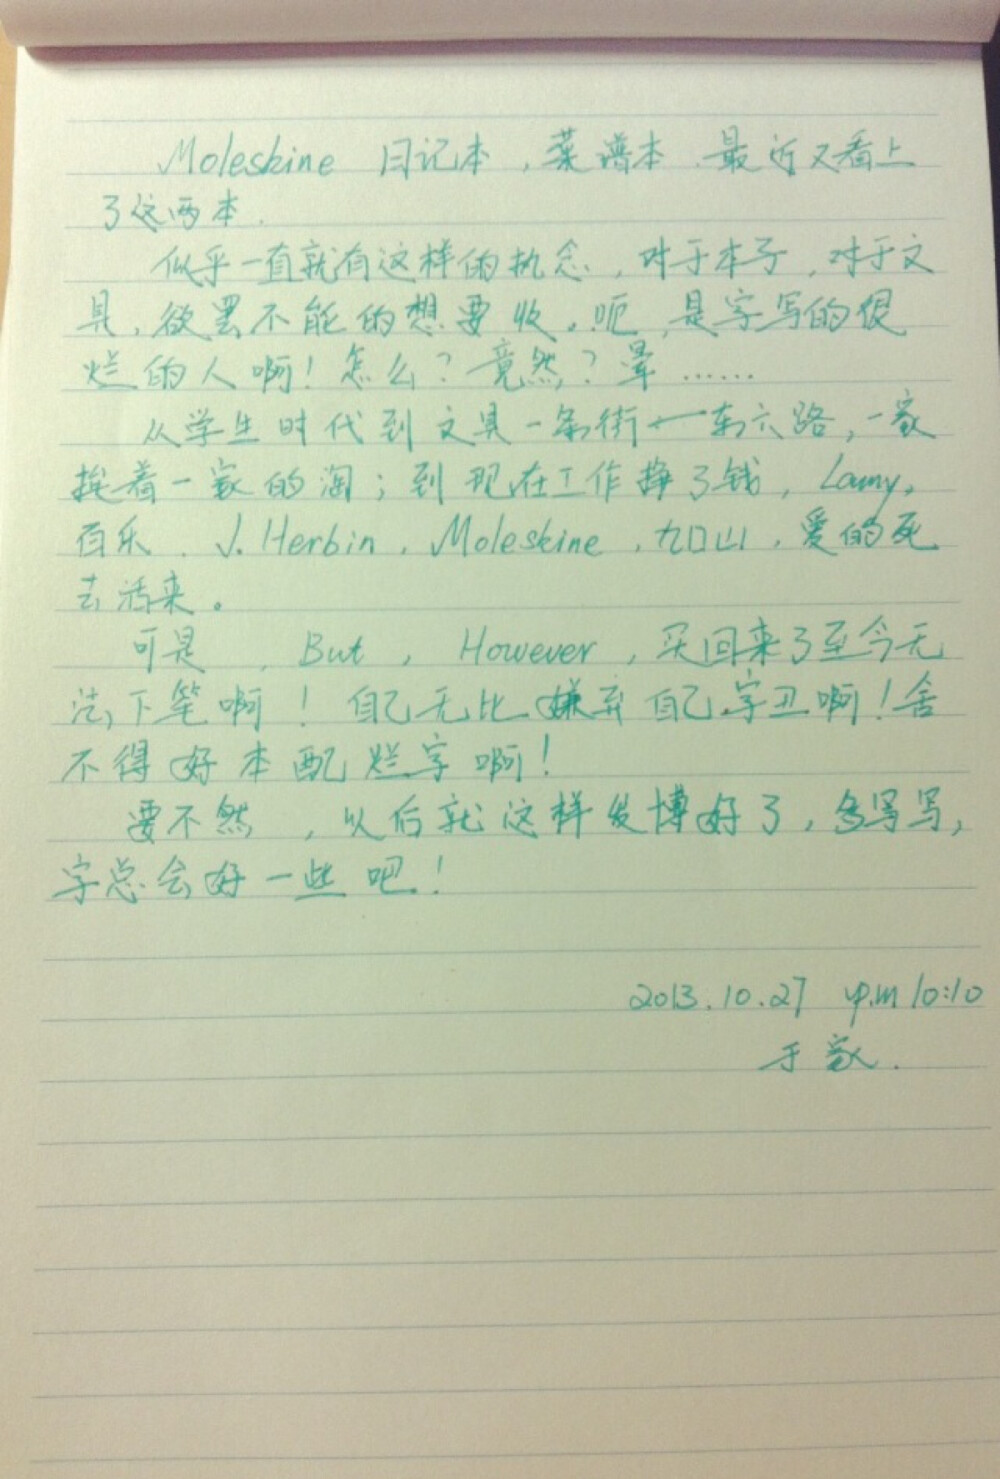 Moleskine 日记本，菜谱本．最近又看上
了这两本．
似乎一直就有这样的执念，对于本子，对于文
具，欲罢不能的想要收。呃，是字写的很
烂的人啊！怎么？竟然？晕……
从学生时代到文具一条街——东六路，一家
挨着一家的淘；到现在工作挣了钱，Lamy，
百乐．J. Herbin．Moleskine，九口山，爱的死
去活来。
可是，But，However，买回来了至今无
法下笔啊！自己无比嫌弃自己字丑啊！舍
不得好本配烂字啊！
要不然，以后就这样发博好了，多写写，
字总会好一些吧！
2013.10.27 p.m 10:10
于家．